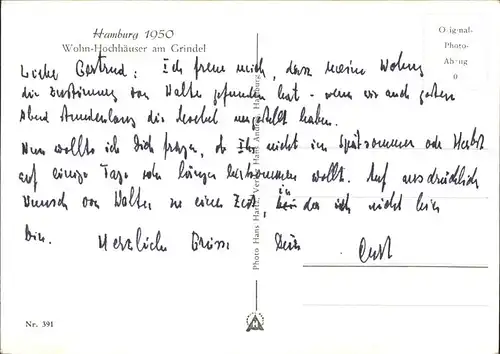 Hamburg 1950
Wohn-Hochhäuser am Grindel
Original-
Photo-
Abzug
0
Liebe Gertrud: Ich freue mich, dass meine Wohng
die Zustimmung von Walter gefunden hat – wenn wir auch gestern
Abend stundenlang die Moebel umgestellt haben.
Nun wollte ich Dich fragen, ob Ihr nicht im Spätsommer oder Herbst
auf einige Tage oder länger herkommen wollt. Auf ausdrücklich
Wunsch von Walter zu einer Zeit, in der ich nicht hier
bin. Herzliche Grüsse Dein
Photo Hans Hartz, Verlag Hans Andres, Hamburg
Nr. 391